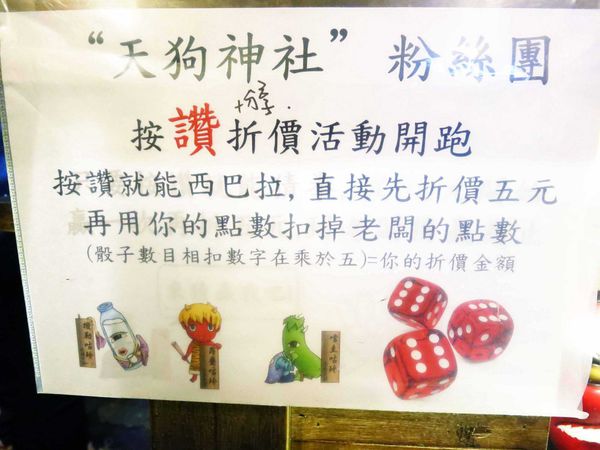 “天狗神社” 粉絲團
+分享.
按讚折價活動開跑
按讚就能西巴拉, 直接先折價五元
再用你的點數扣掉老闆的點數
(骰子數目相扣數字在乘於五)=你的折價金額